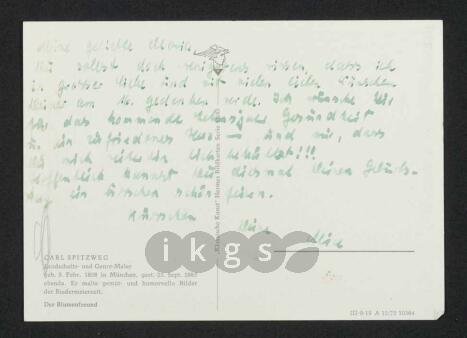 Meine geliebte Maria
Du sollst doch wenigstens wissen, dass ich
in grosser Liebe und mit vielen lieben Wünschen
Deiner am 16. gedenken werde. Ich wünsche Dir
für das kommende Lebensjahr Gesundheit
u. ein zufriedenes Herz – und mir, dass
Du mich weiterhin lieb behältst!!!
Hoffentlich kannst Du diesmal Deinen Geburts-
tag ein bisschen schön feiern.
Küsschen Deine
"Klassische Kunst" Hermes Bildkarten Serie
CARL SPITZWEG
Landschafts- und Genre-Maler
geb. 5. Febr. 1808 in München, gest. 23. Sept. 1885
ebenda. Er malte gemüt- und humorvolle Bilder
der Biedermeierzeit.
Der Blumenfreund
III-9-19 A 12/72 10364
ikgs